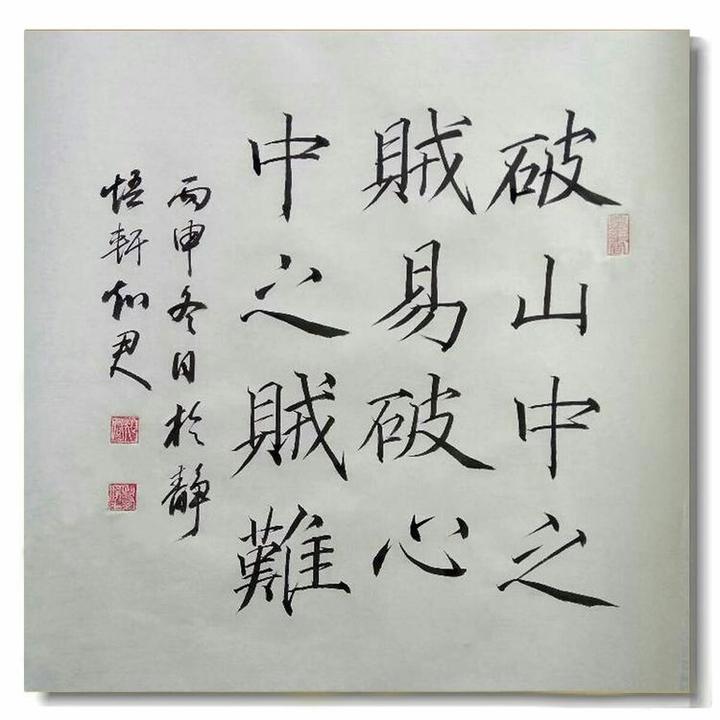 破山中之
賊易破心
中之賊難
丙申冬日於靜
悟軒和君